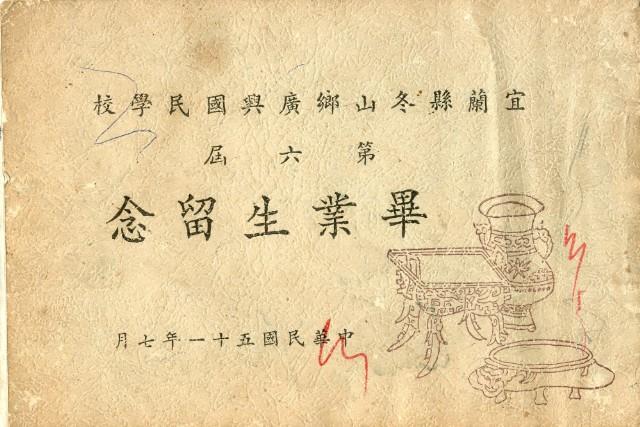 宜蘭縣冬山鄉廣興國民學校
第六屆
畢業生留念
中華民國五十一年七月